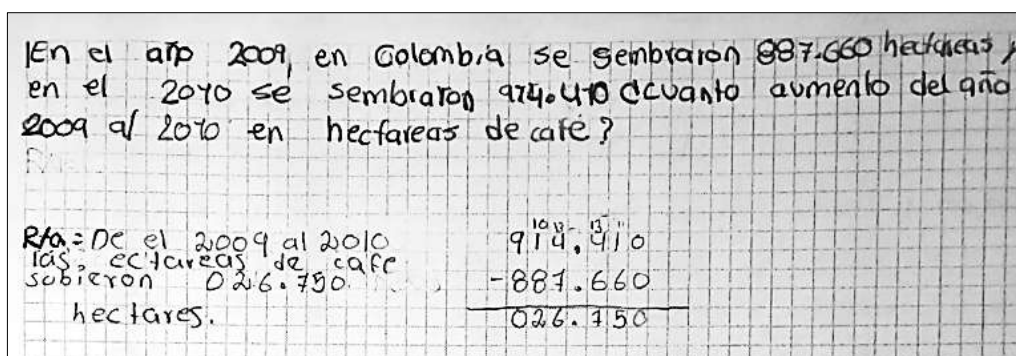 En el año 2009, en Colombia se sembraron 887.660 hectareas y
en el 2010 se sembraron 914.410 ¿cuanto aumento del año
2009 al 2010 en hectareas de café?
R/a = De el 2009 al 2010
las ectareas de cafe
subieron 026.750
hectares.
10 13 13 11
914.410
-887.660
026.750